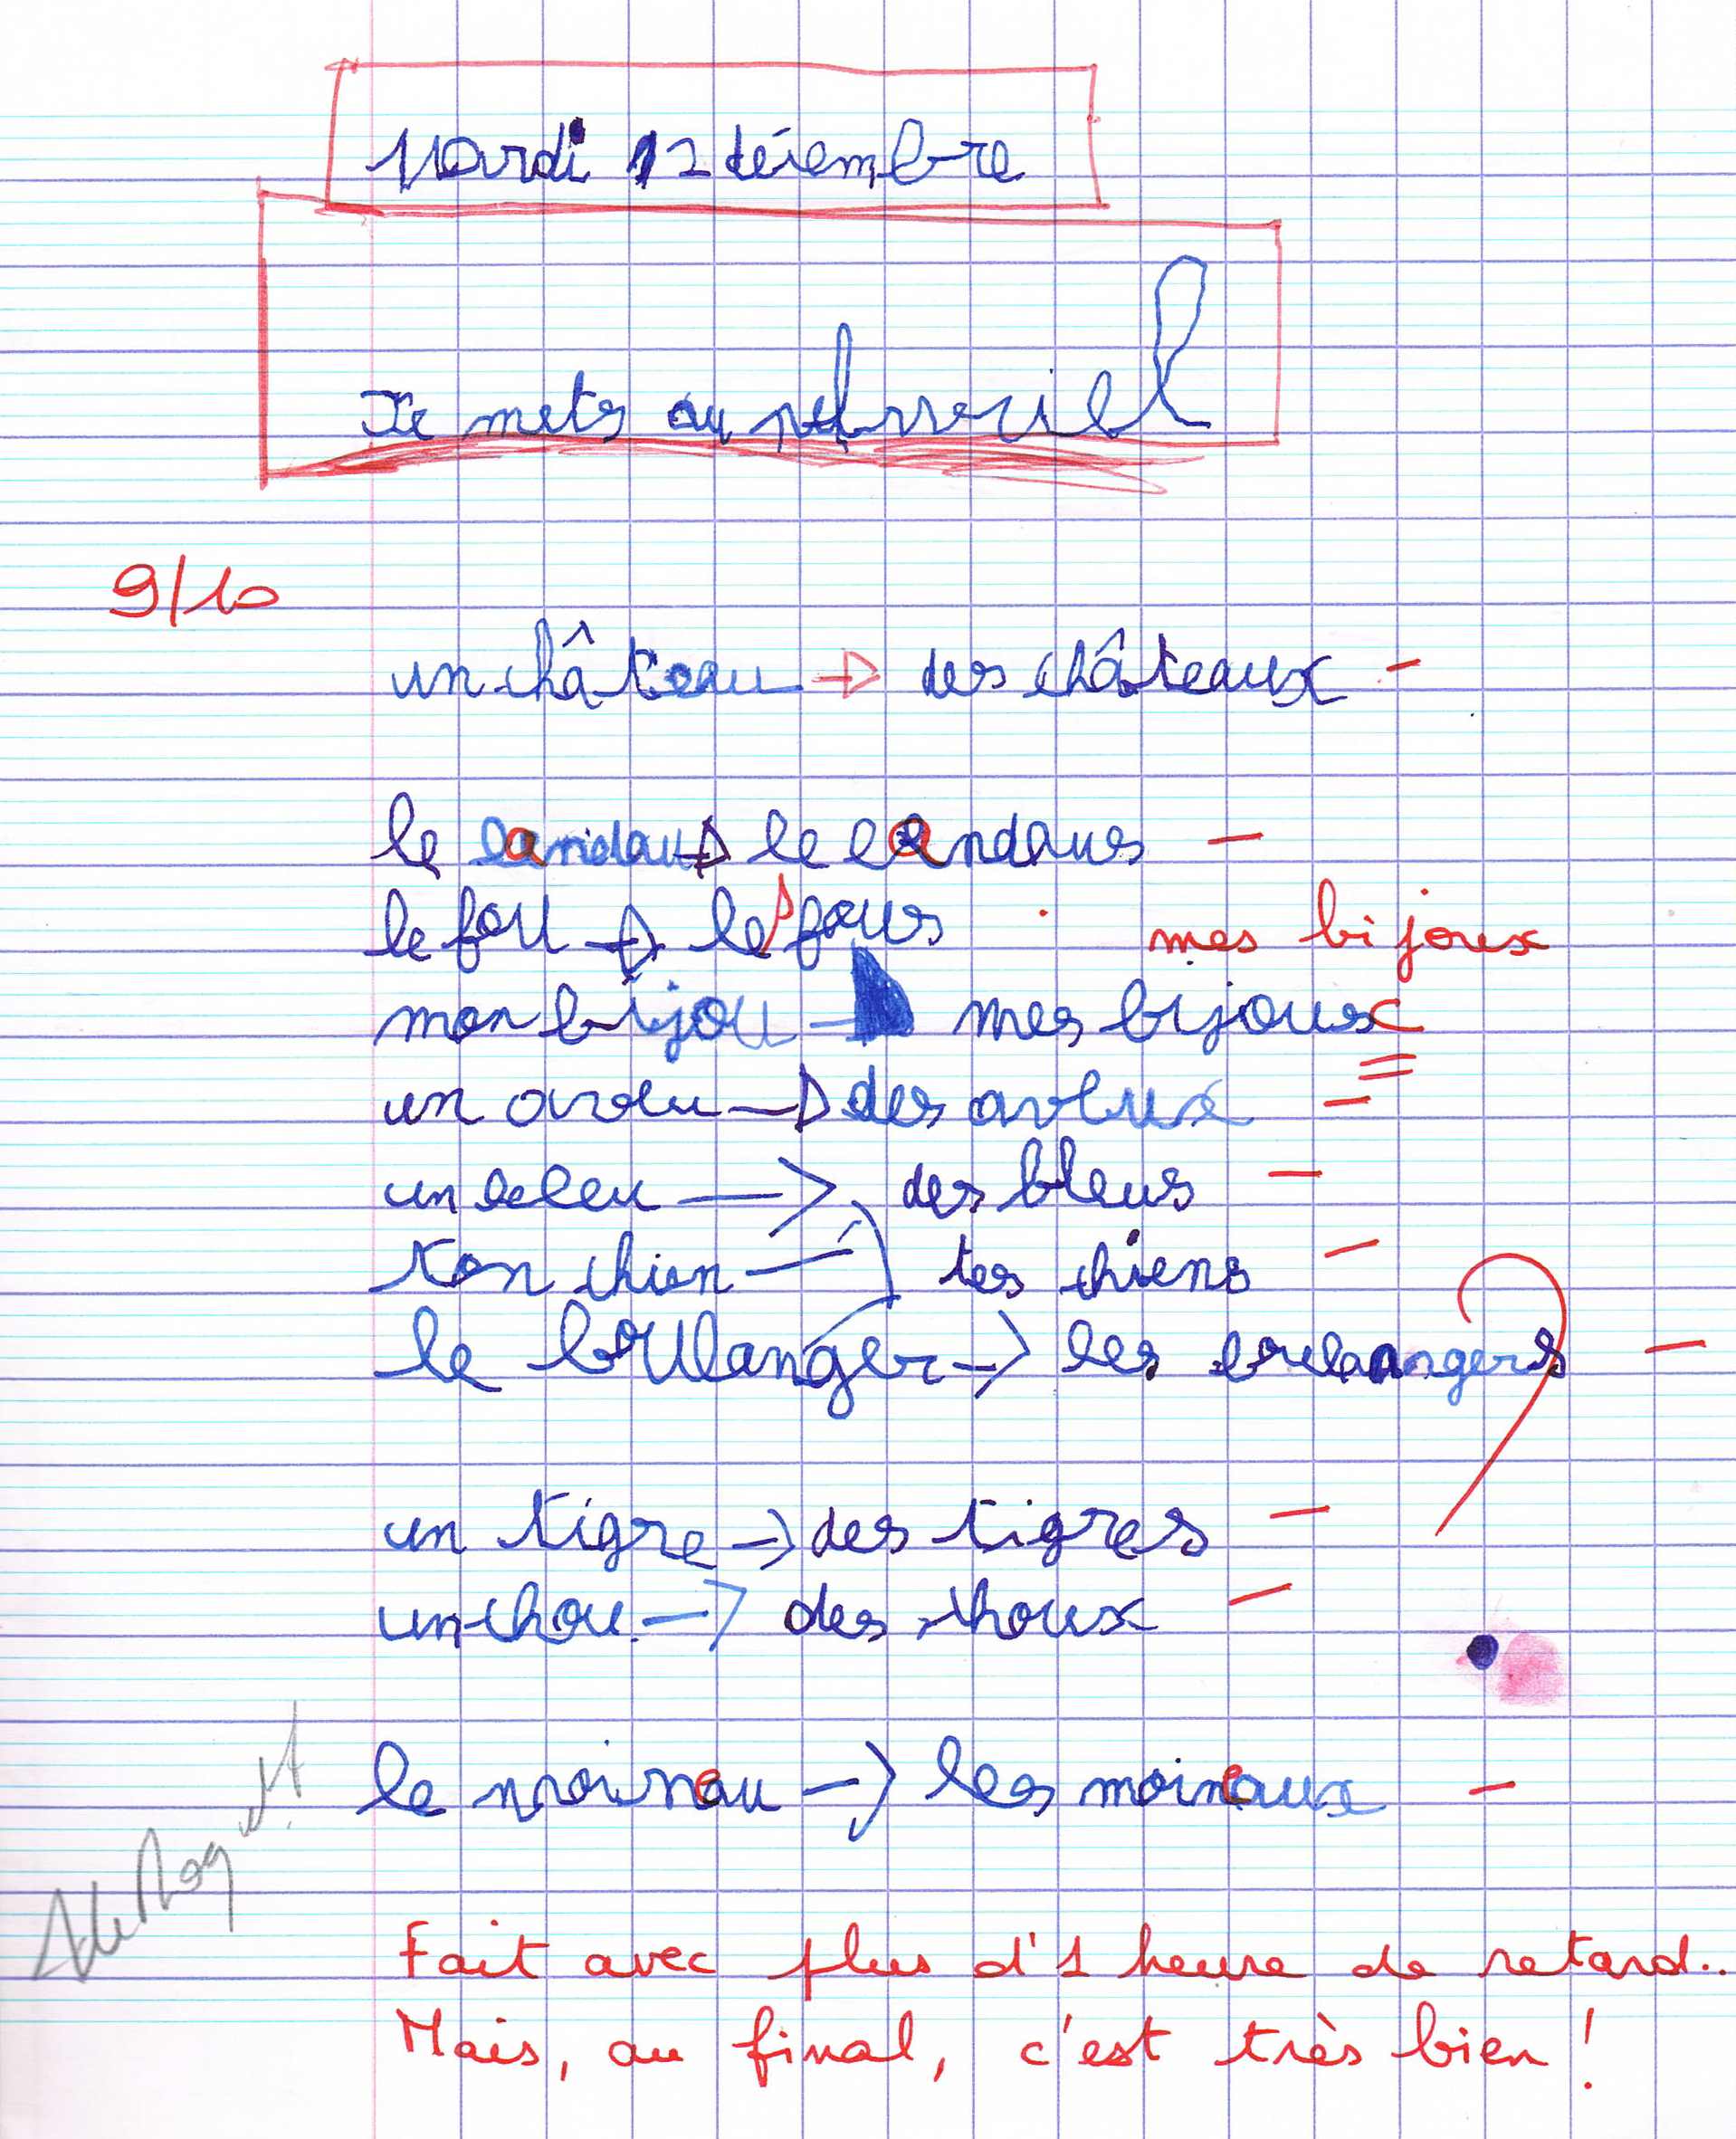 Mardi 12 décembre
Je mets au pluriel
9/10
un château → des châteaux -
le landau → le landaus -
le fou → les fous
mes bijoux
mon bijou → mes bijoux
un aveu → des aveux -
un bleu → des bleus -
ton chien → tes chiens -
le boulanger → les boulangers -
un tigre → des tigres -
un chou → des choux -
le moineau → les moineaux -
Fait avec plus d'1 heure de retard..
Mais, au final, c'est très bien !